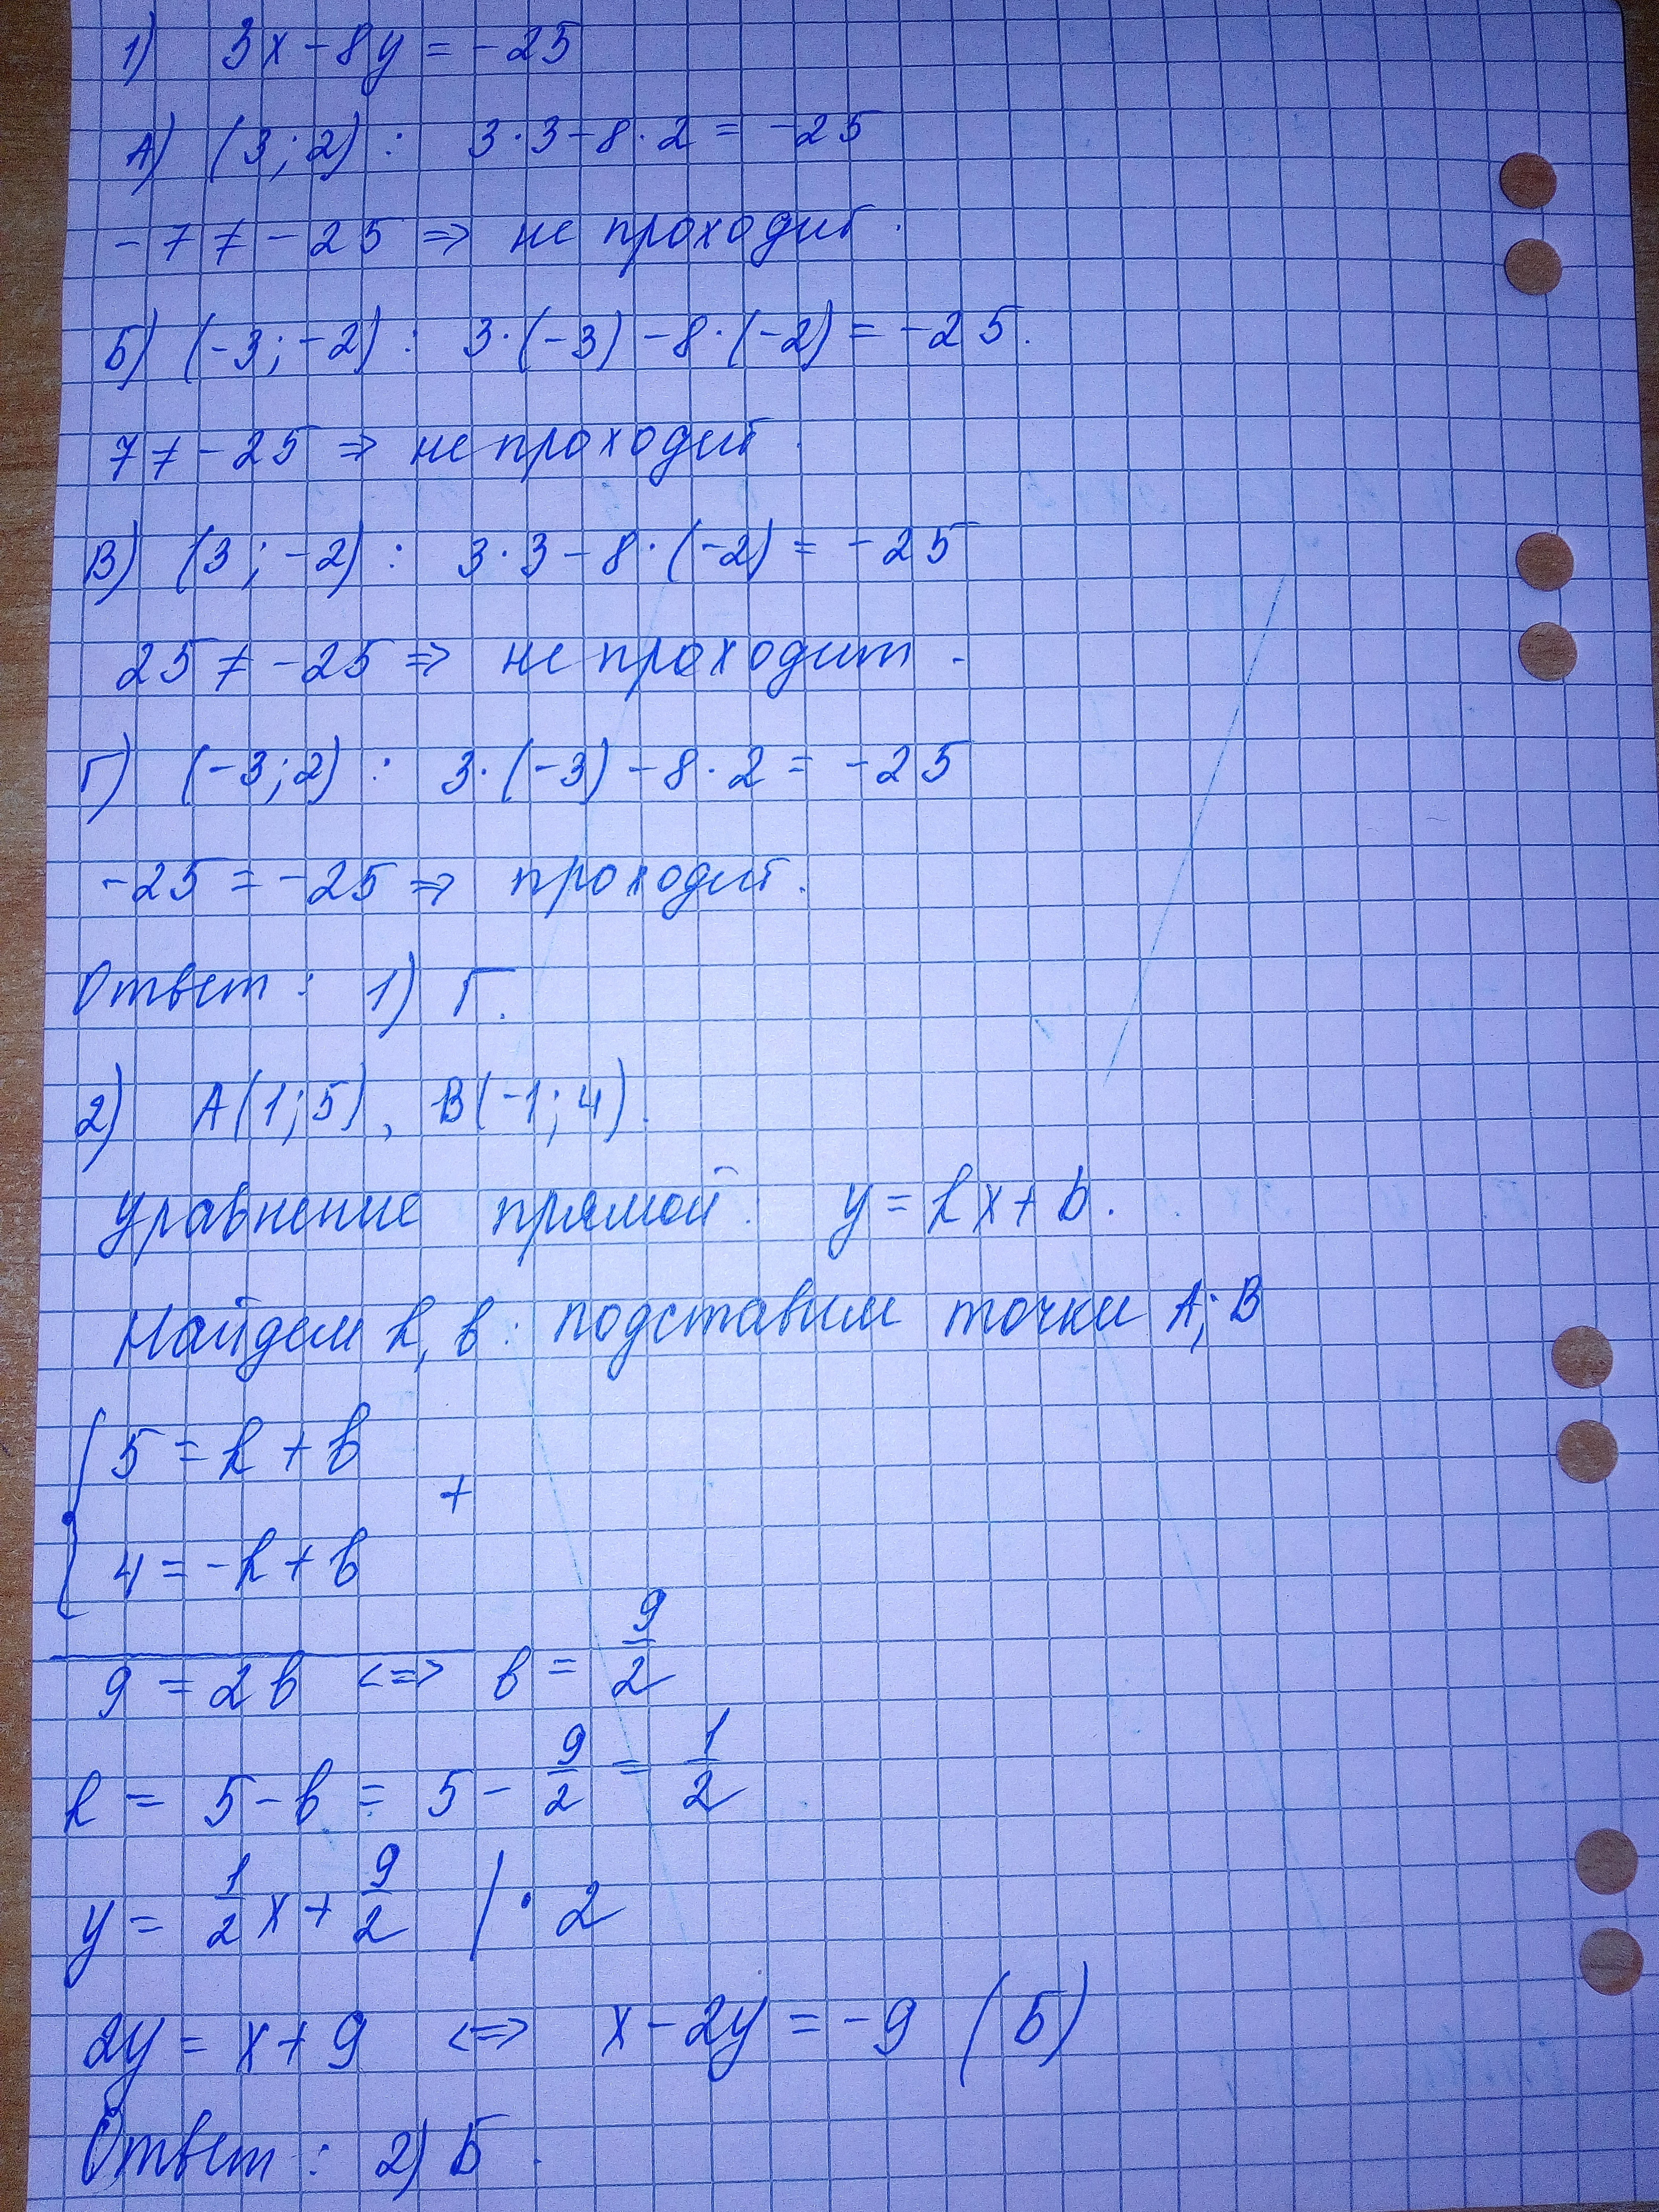 1) 3x - 8y = -25
А) (3; 2) : 3·3 - 8·2 = -25
-7 ≠ -25 => не проходит.
Б) (-3; -2) : 3·(-3) - 8·(-2) = -25.
7 ≠ -25 => не проходит.
В) (3; -2) : 3·3 - 8·(-2) = -25
25 ≠ -25 => не проходит.
Г) (-3; 2) : 3·(-3) - 8·2 = -25
-25 = -25 => проходит.
Ответ: 1) Г.
2) A(1; 5), B(-1; 4).
уравнение прямой: y = kx + b.
Найдем k, b: подставим точки A; B
5 = k + b
+
4 = -k + b
9 = 2b <=> b = 9/2
k = 5 - b = 5 - 9/2 = 1/2
y = 1/2 x + 9/2 | · 2
2y = x + 9 <=> x - 2y = -9 (Б)
Ответ: 2) Б.